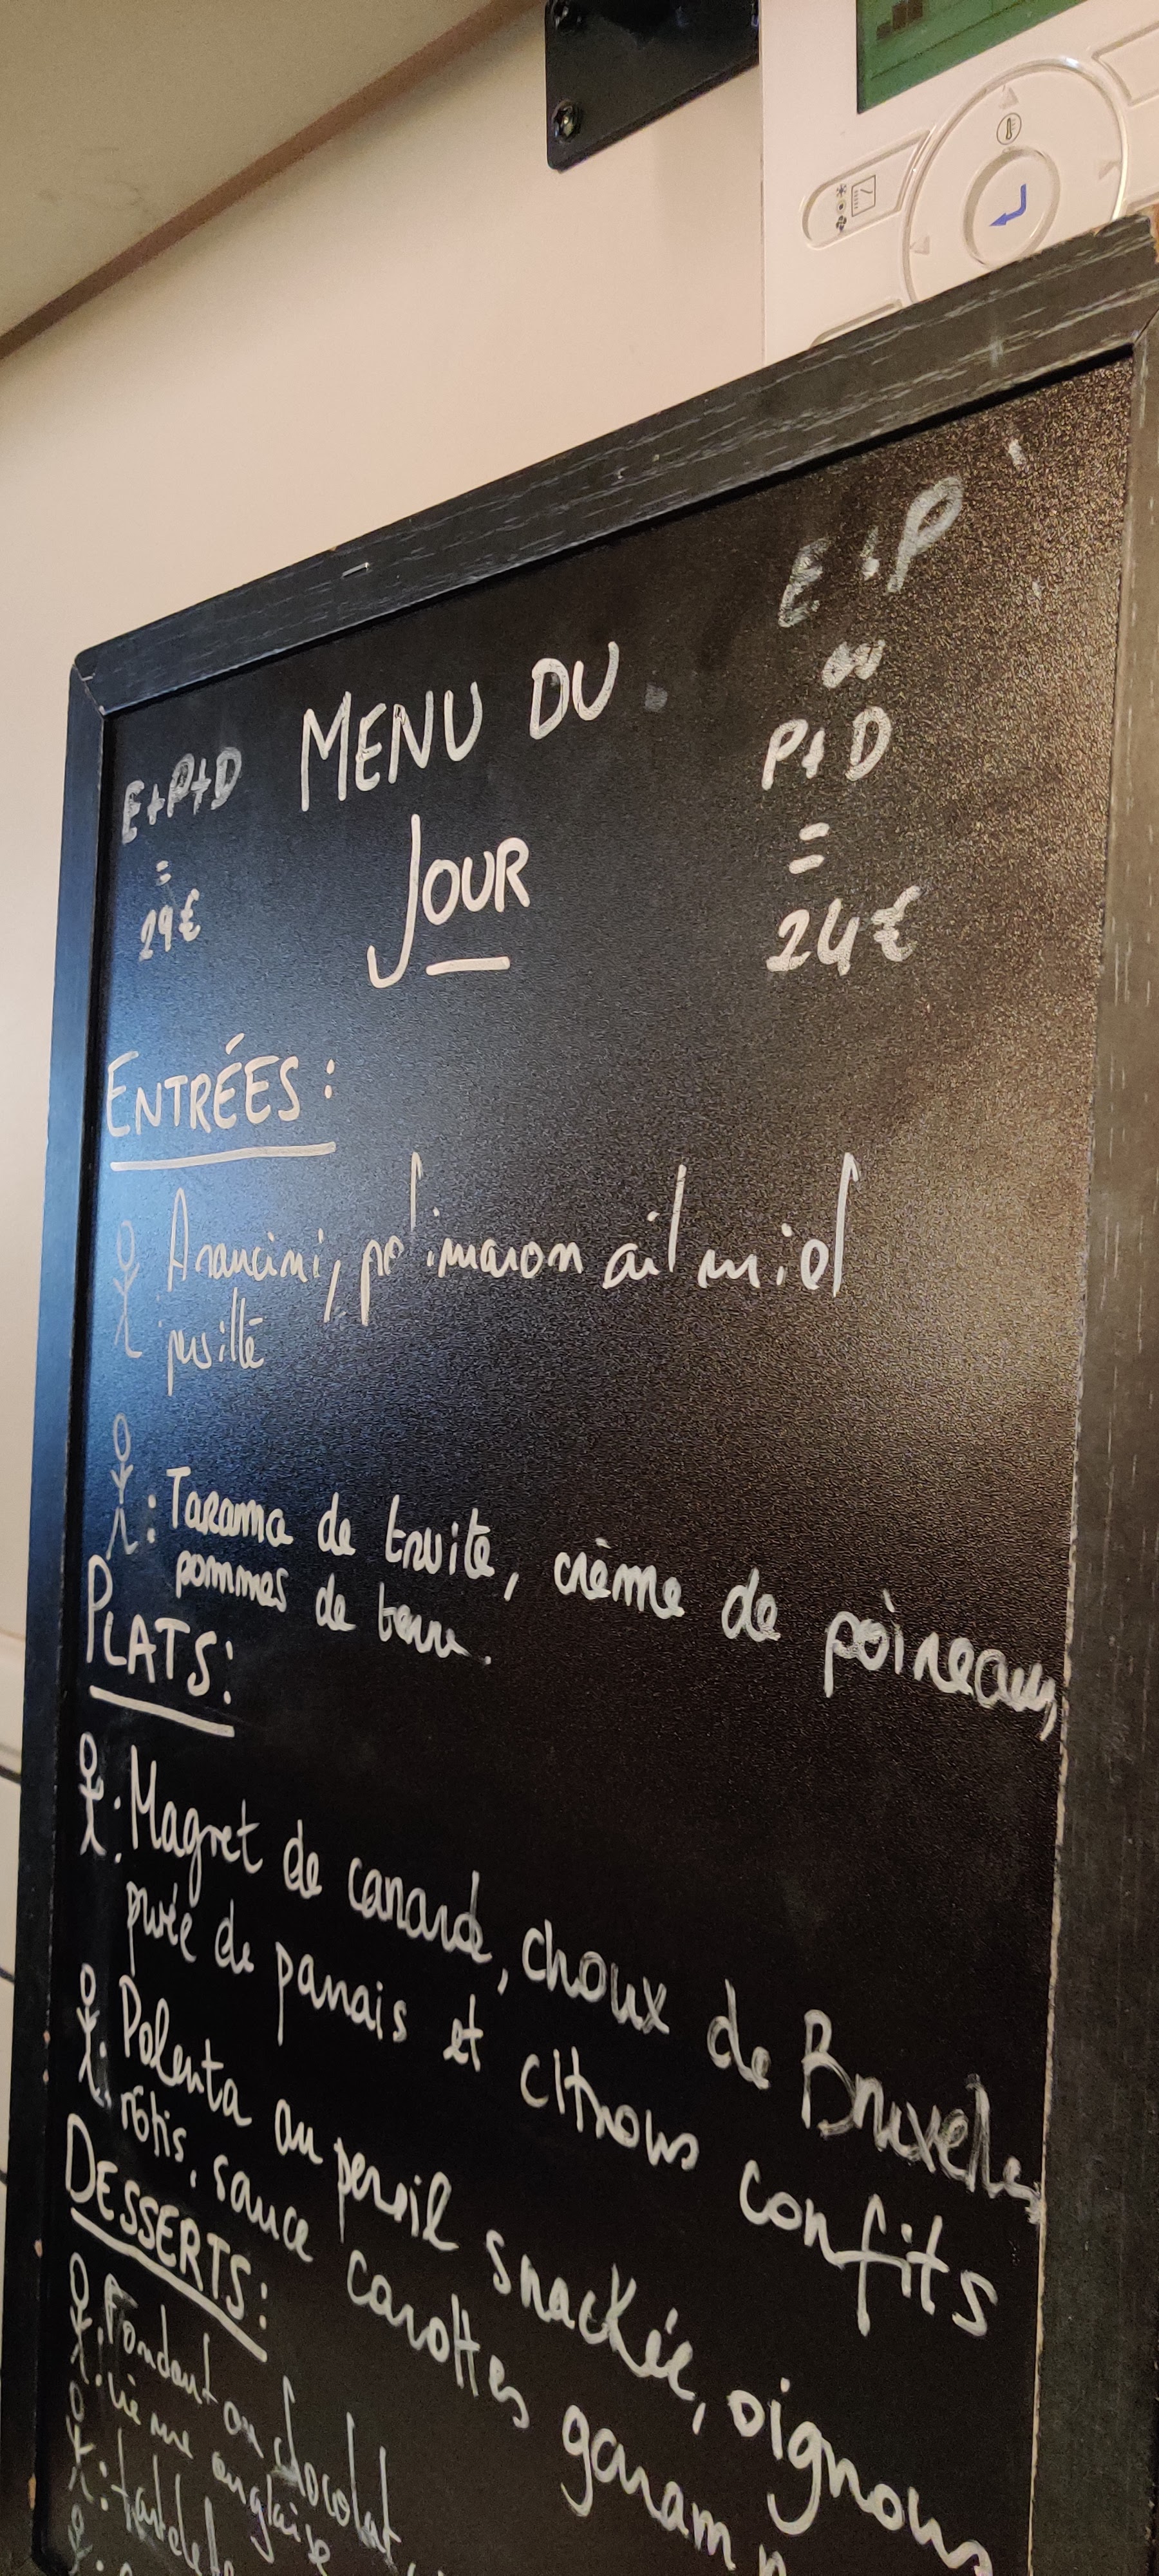 E+P
ou
P+D
=
24€
MENU DU
JOUR
E+P+D
=
29€
ENTRÉES:
Arancini, potimaron ail miel
persillé
: Tarama de truite, crème de poireaux,
pommes de terre.
PLATS:
: Magret de canard, choux de Bruxelles
purée de panais et citrons confits
: Polenta au persil snackée, oignons
rôtis, sauce carottes garam
DESSERTS:
: Fondant au chocolat
anglaise